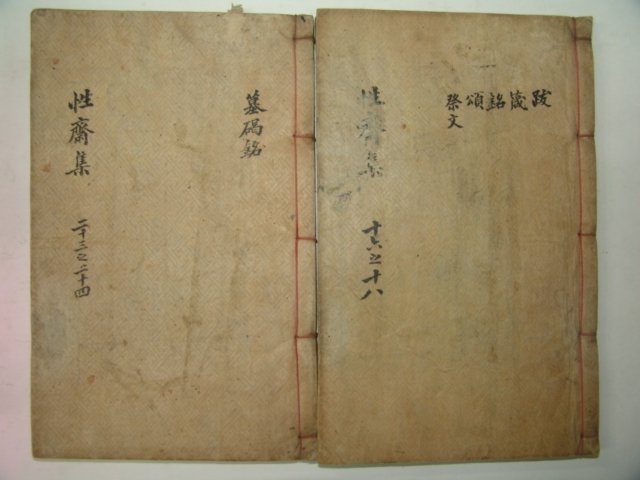 跋
箴
銘
頌
祭文
性齋集
十六之十八
墓碣銘
性齋集
二十三之二十四